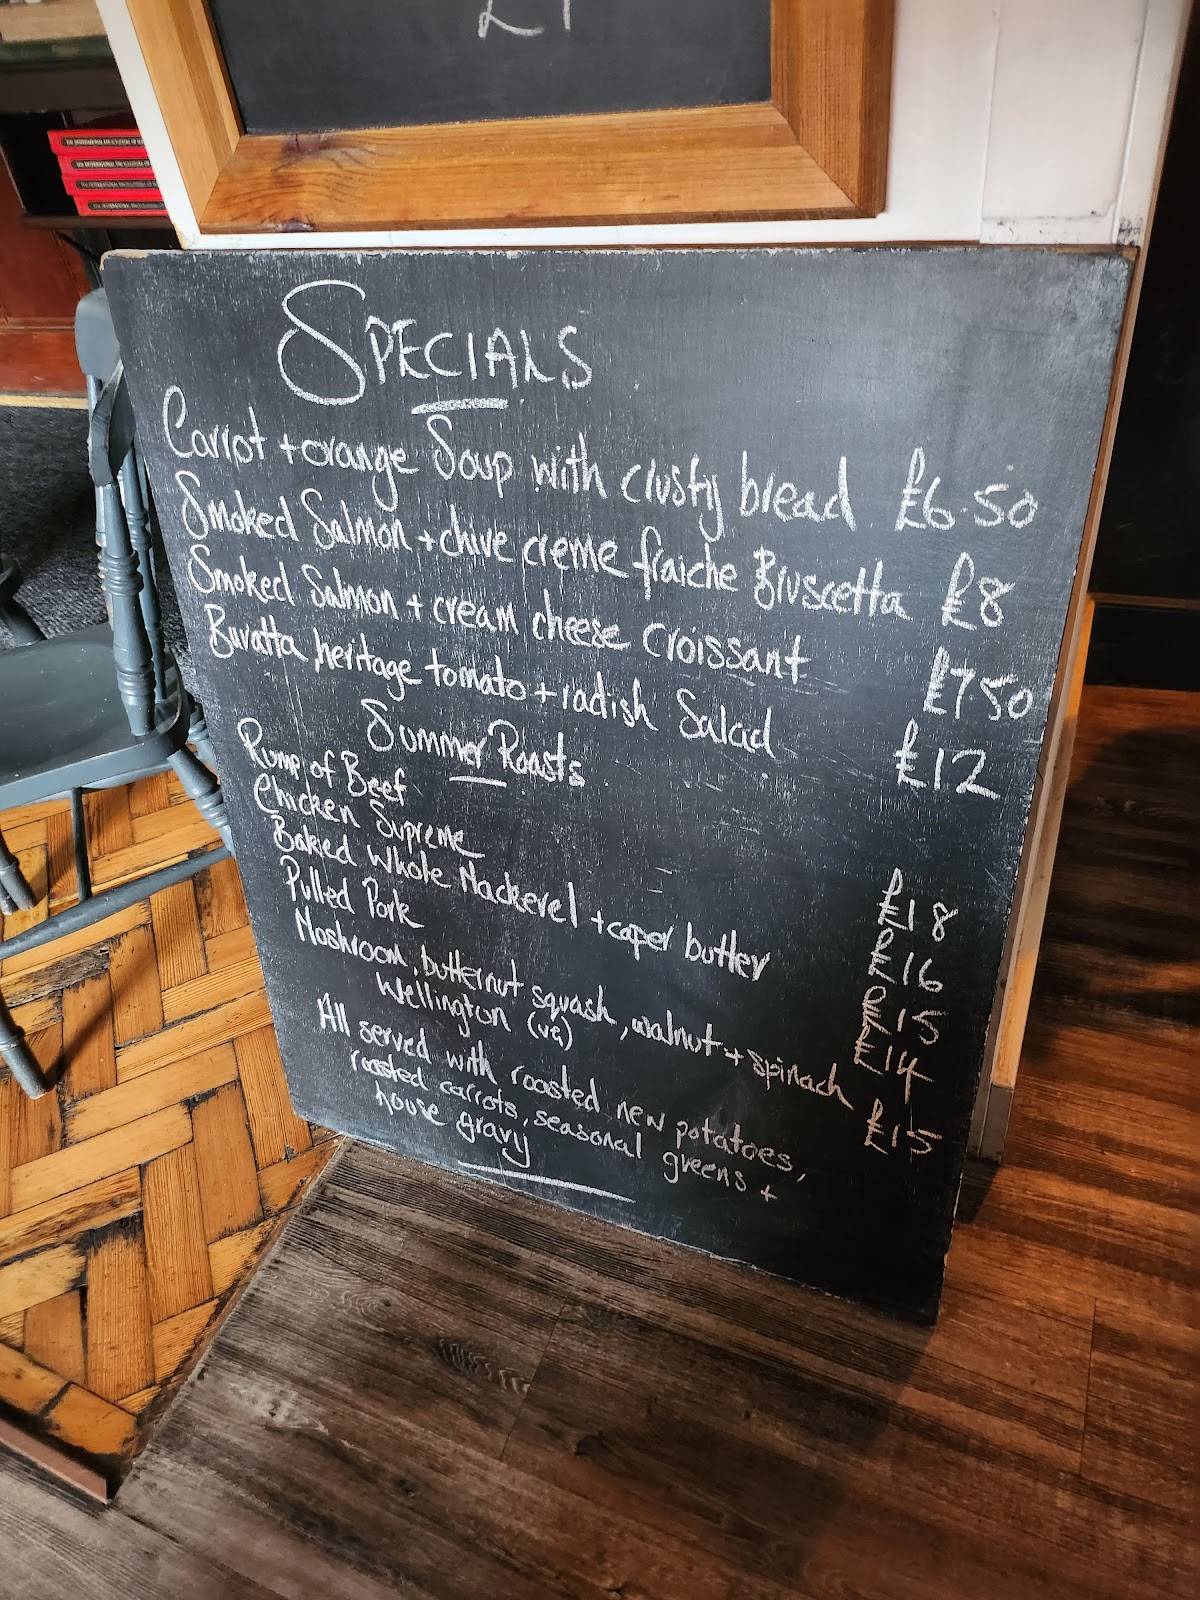 £1
SPECIALS
Carrot + orange Soup with crusty bread £6.50
Smoked Salmon + chive creme fraiche Bruscetta £8
Smoked Salmon + cream cheese croissant £7.50
Buratta, heritage tomato + radish Salad £12
Summer Roasts
Rump of Beef £18
Chicken Supreme £16
Baked Whole Mackerel + caper butter £15
Pulled Pork £14
Mushroom, butternut squash, walnut + spinach
Wellington (vg) £15
All served with roasted new potatoes,
roasted carrots, seasonal greens +
house gravy